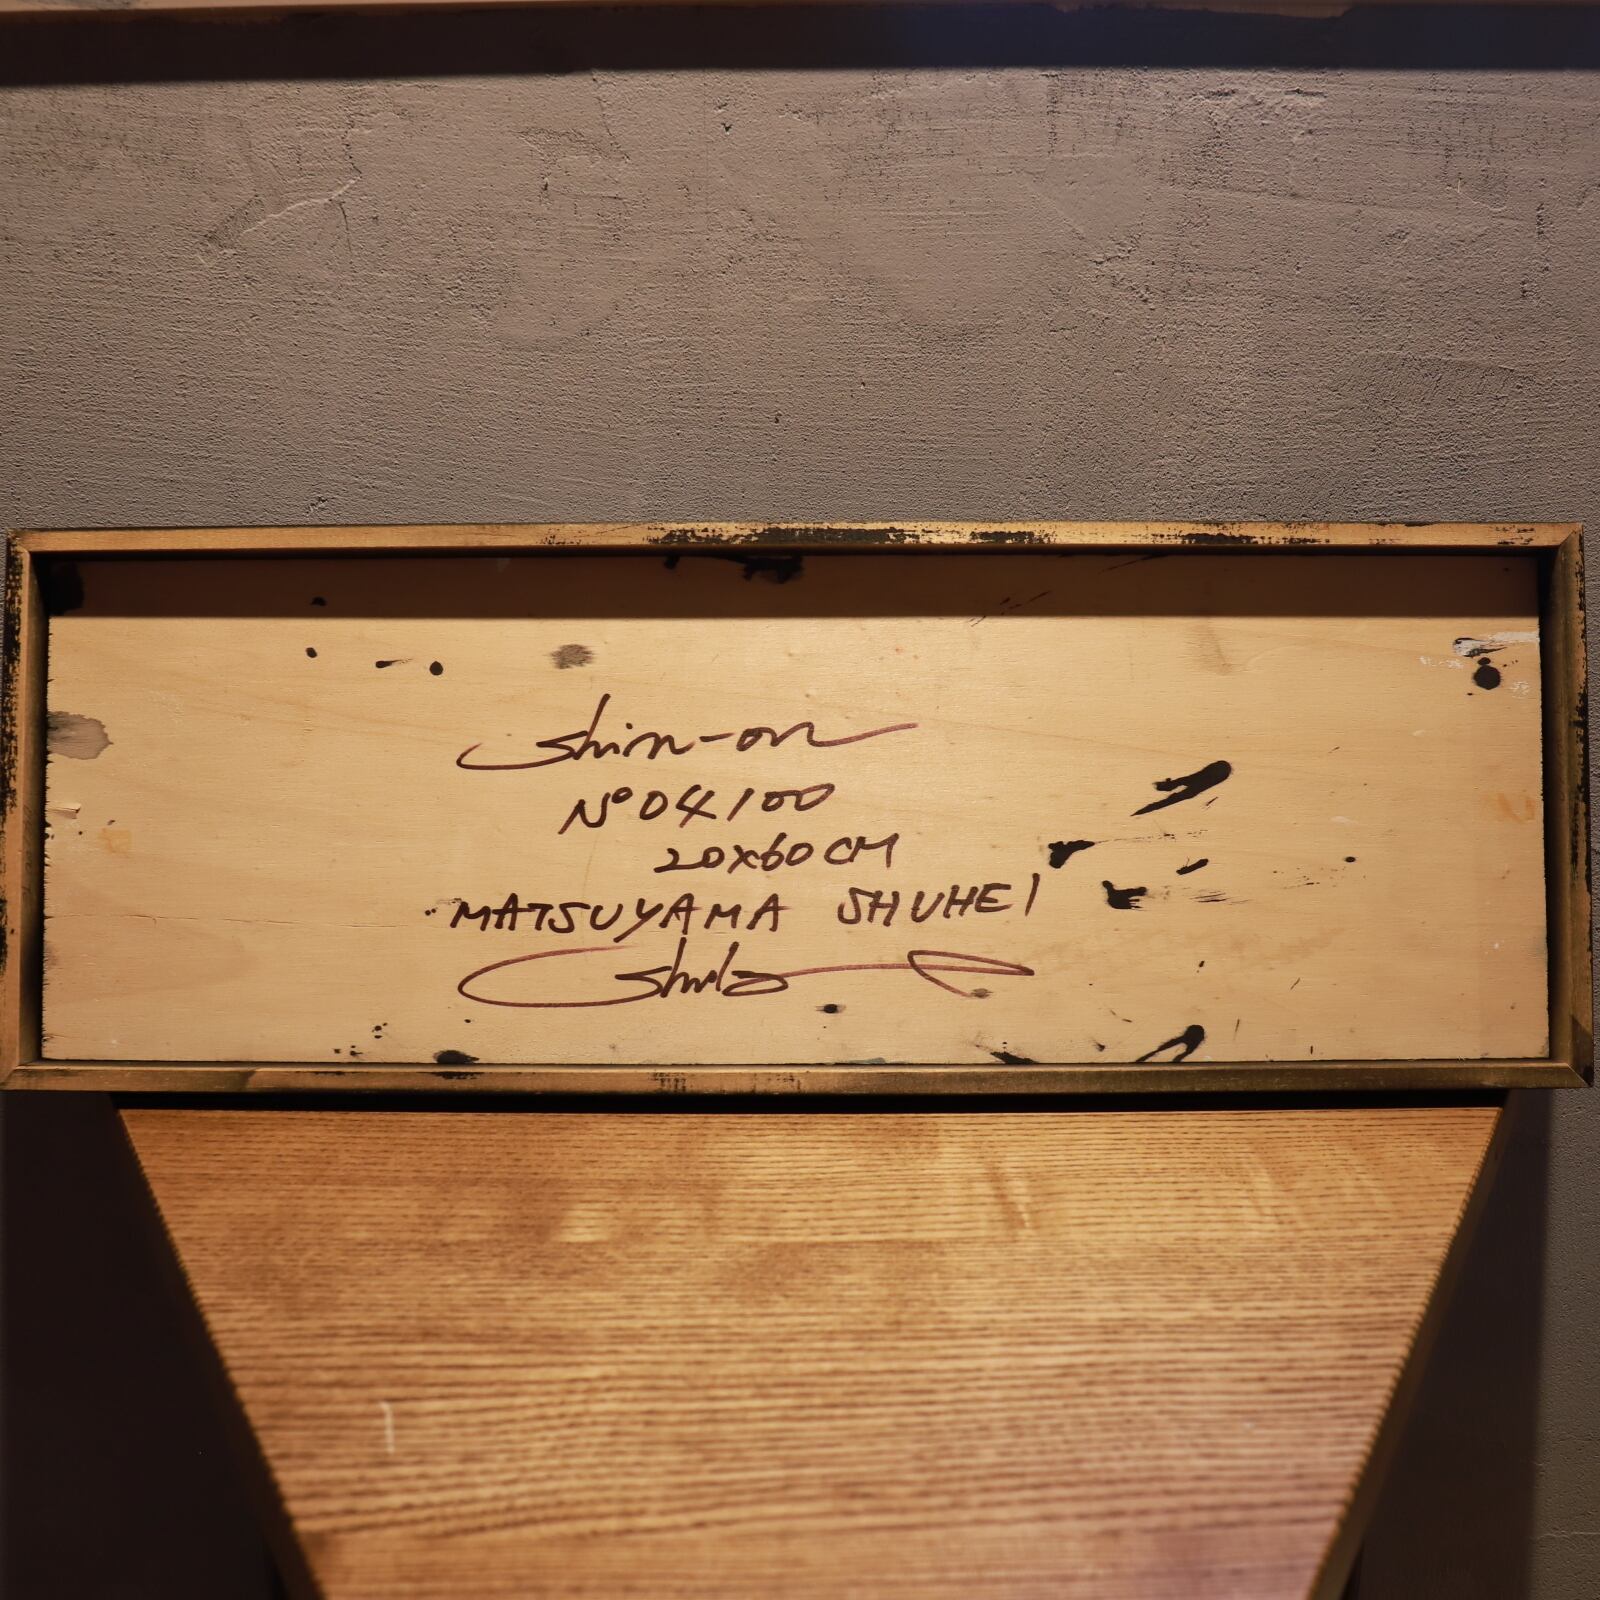 Shin-on
Nº 04100
20x60 CM
MATSUYAMA SHUHEI